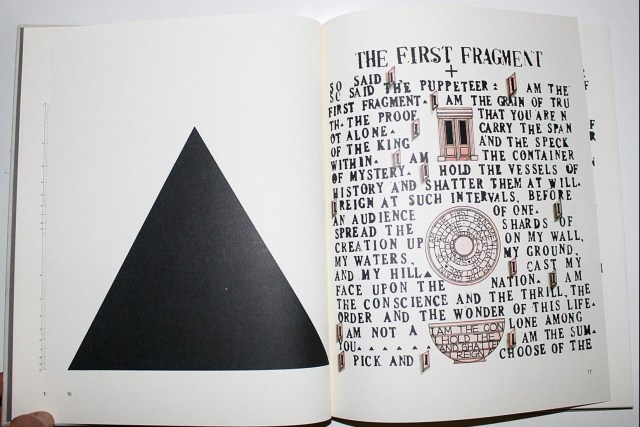 THE FIRST FRAGMENT
+
SO SAID
SO SAID THE PUPPETEER: I AM THE
FIRST FRAGMENT. I AM THE GRAIN OF TRU
TH. THE PROOF THAT YOU ARE N
OT ALONE. I CARRY THE SPAN
OF THE KING AND THE SPECK
WITHIN. I AM THE CONTAINER
OF MYSTERY. I HOLD THE VESSELS OF
HISTORY AND SHATTER THEM AT WILL.
I REIGN AT SUCH INTERVALS, BEFORE
AN AUDIENCE OF ONE. I
SPREAD THE SHARDS OF
CREATION UP ON MY WALL,
MY WATERS, MY GROUND,
AND MY HILL. I CAST MY
FACE UPON THE NATION. I AM
THE CONSCIENCE AND THE THRILL, THE
ORDER AND THE WONDER OF THIS LIFE.
I AM NOT A LONE AMONG
YOU. . . . . . I AM THE SUM.
I PICK AND I CHOOSE OF THE
I AM THE CON
I HOLD THE
AND SHATTE
REIGN
17